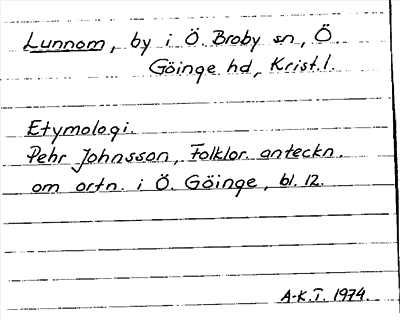 Lunnom, by i Ö. Broby sn, Ö.
Göinge hd, Krist.l.
Etymologi.
Pehr Johnsson, Folklor. anteckn.
om ortn. i Ö. Göinge, bl. 12.
A-K.T. 1974.